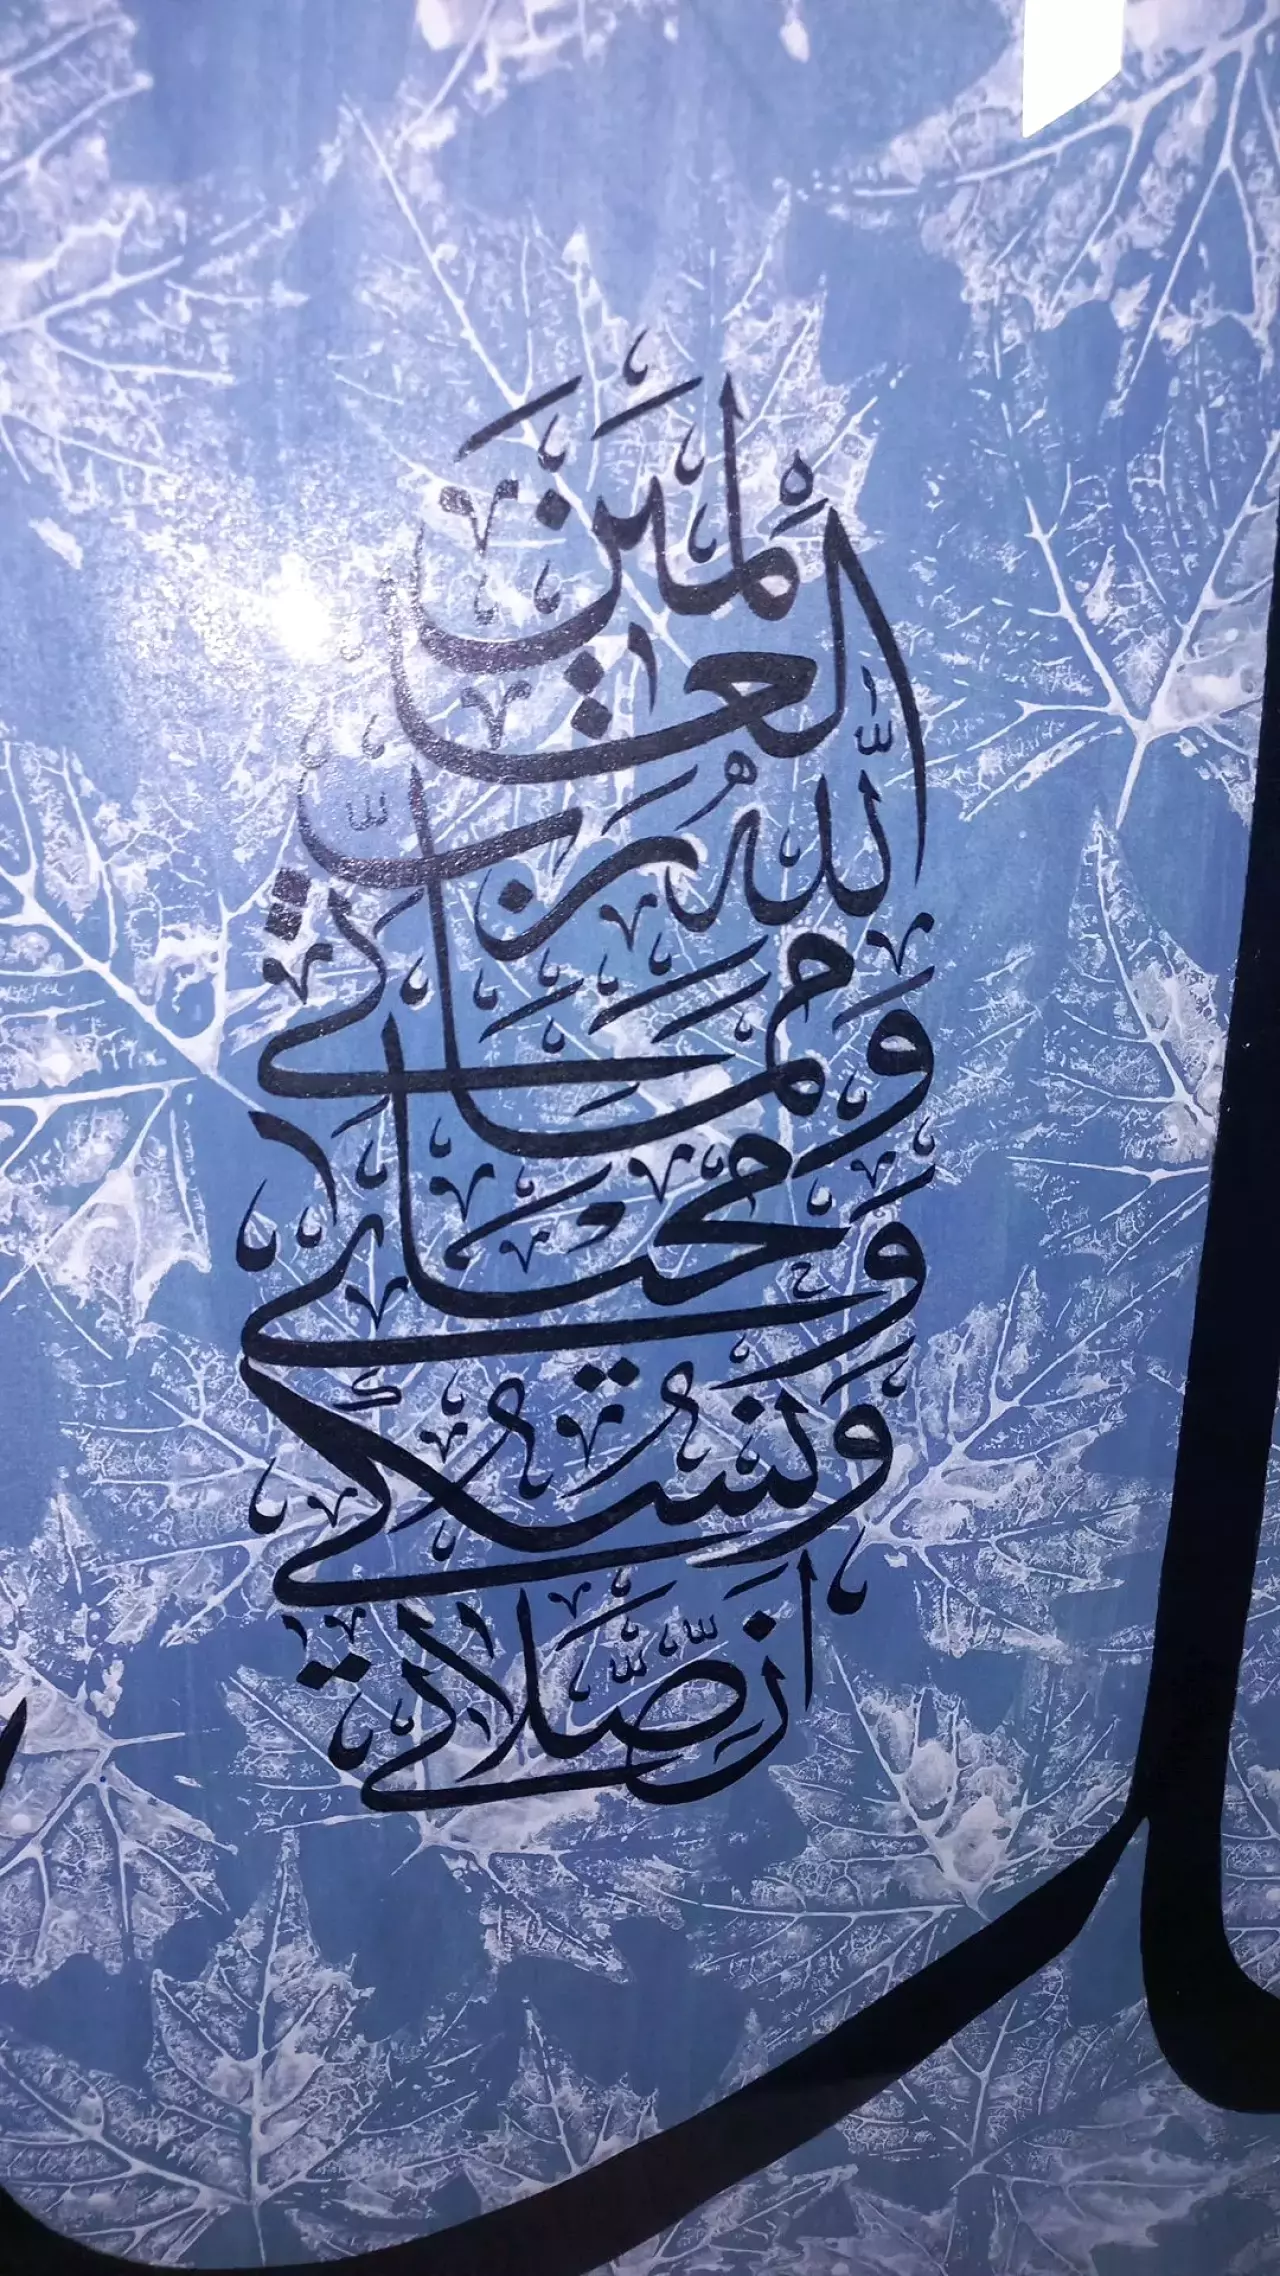 ان صلاتي
ونسكي
ومحياي
ومماتي
لله رب
العالمين